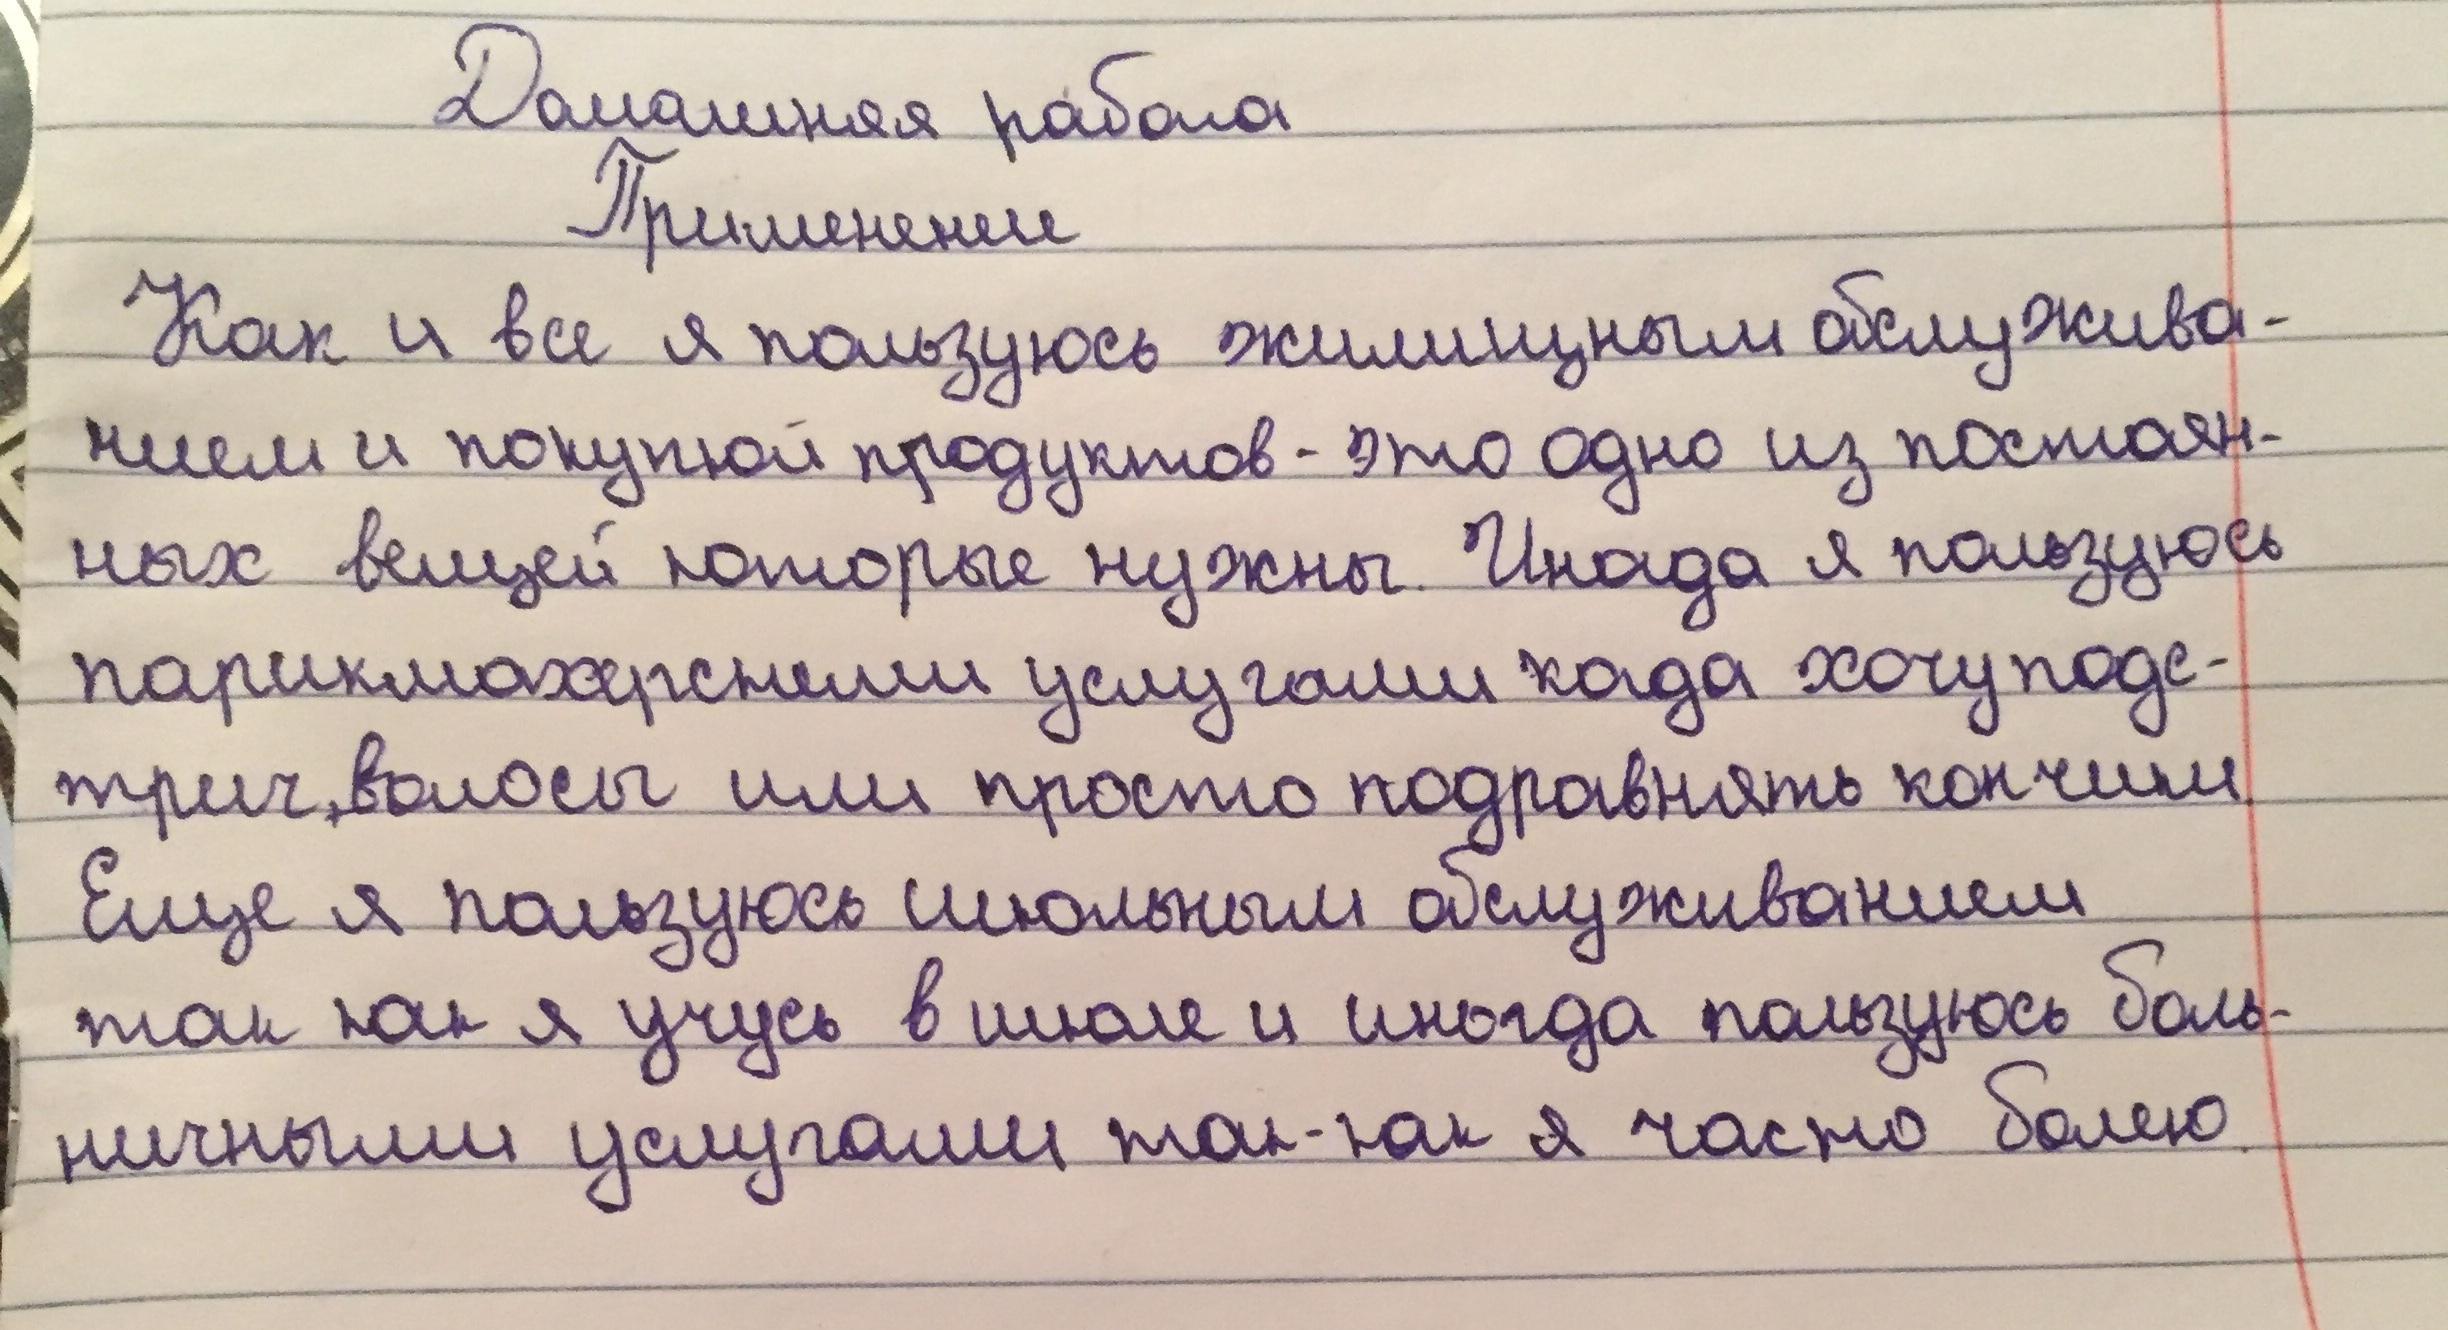 Домашняя работа
Применение
Как и все я пользуюсь жилищным обслужива-
нием и покупкой продуктов - это одно из постоян-
ных вещей которые нужны. Инода я пользуюсь
парикмахерскими услугами када хочу подс-
трич, волосы или просто подравнять кончики.
Еще я пользуюсь школьным обслуживанием
так как я учусь в школе и иногда пользуюсь боль-
ничными услугами так-как я часто болею.